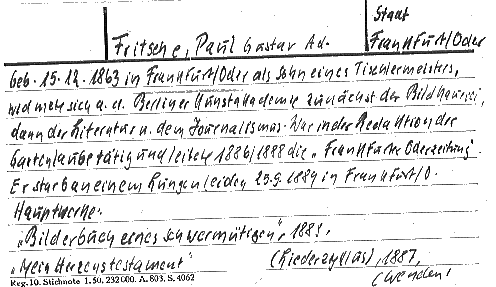 Staat
Fritsche, Paul Gustav Ad.
Frankfurt/Oder
Geb. 15.12.1863 in Frankfurt/Oder als Sohn eines Tischlermeisters,
widmete sich a. d. Berliner Kunstakademie zunächst der Bildhauerei,
dann der Literatur u. dem Journalismus. War in der Redaktion der
Gartenlaube tätig und leitete 1886/1888 die „Frankfurter Oderzeitung".
Er starb an einem Lungenleiden 25.9.1889 in Frankfurt/O.
Hauptwerke:
„Bilderbuch eines Schwermütigen", 1885,
„Mein Herzenstestament" (Liederzyklus), 1887,
(wenden!
Reg. 10. Stichnote 1. 50. 232000. A. 803. S. 4062